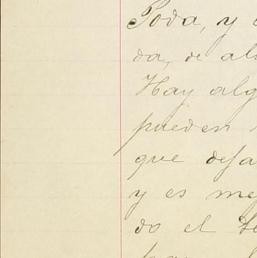 Poda, y
da, de al
Hay alg
pueden
que deja
y es me
do el te